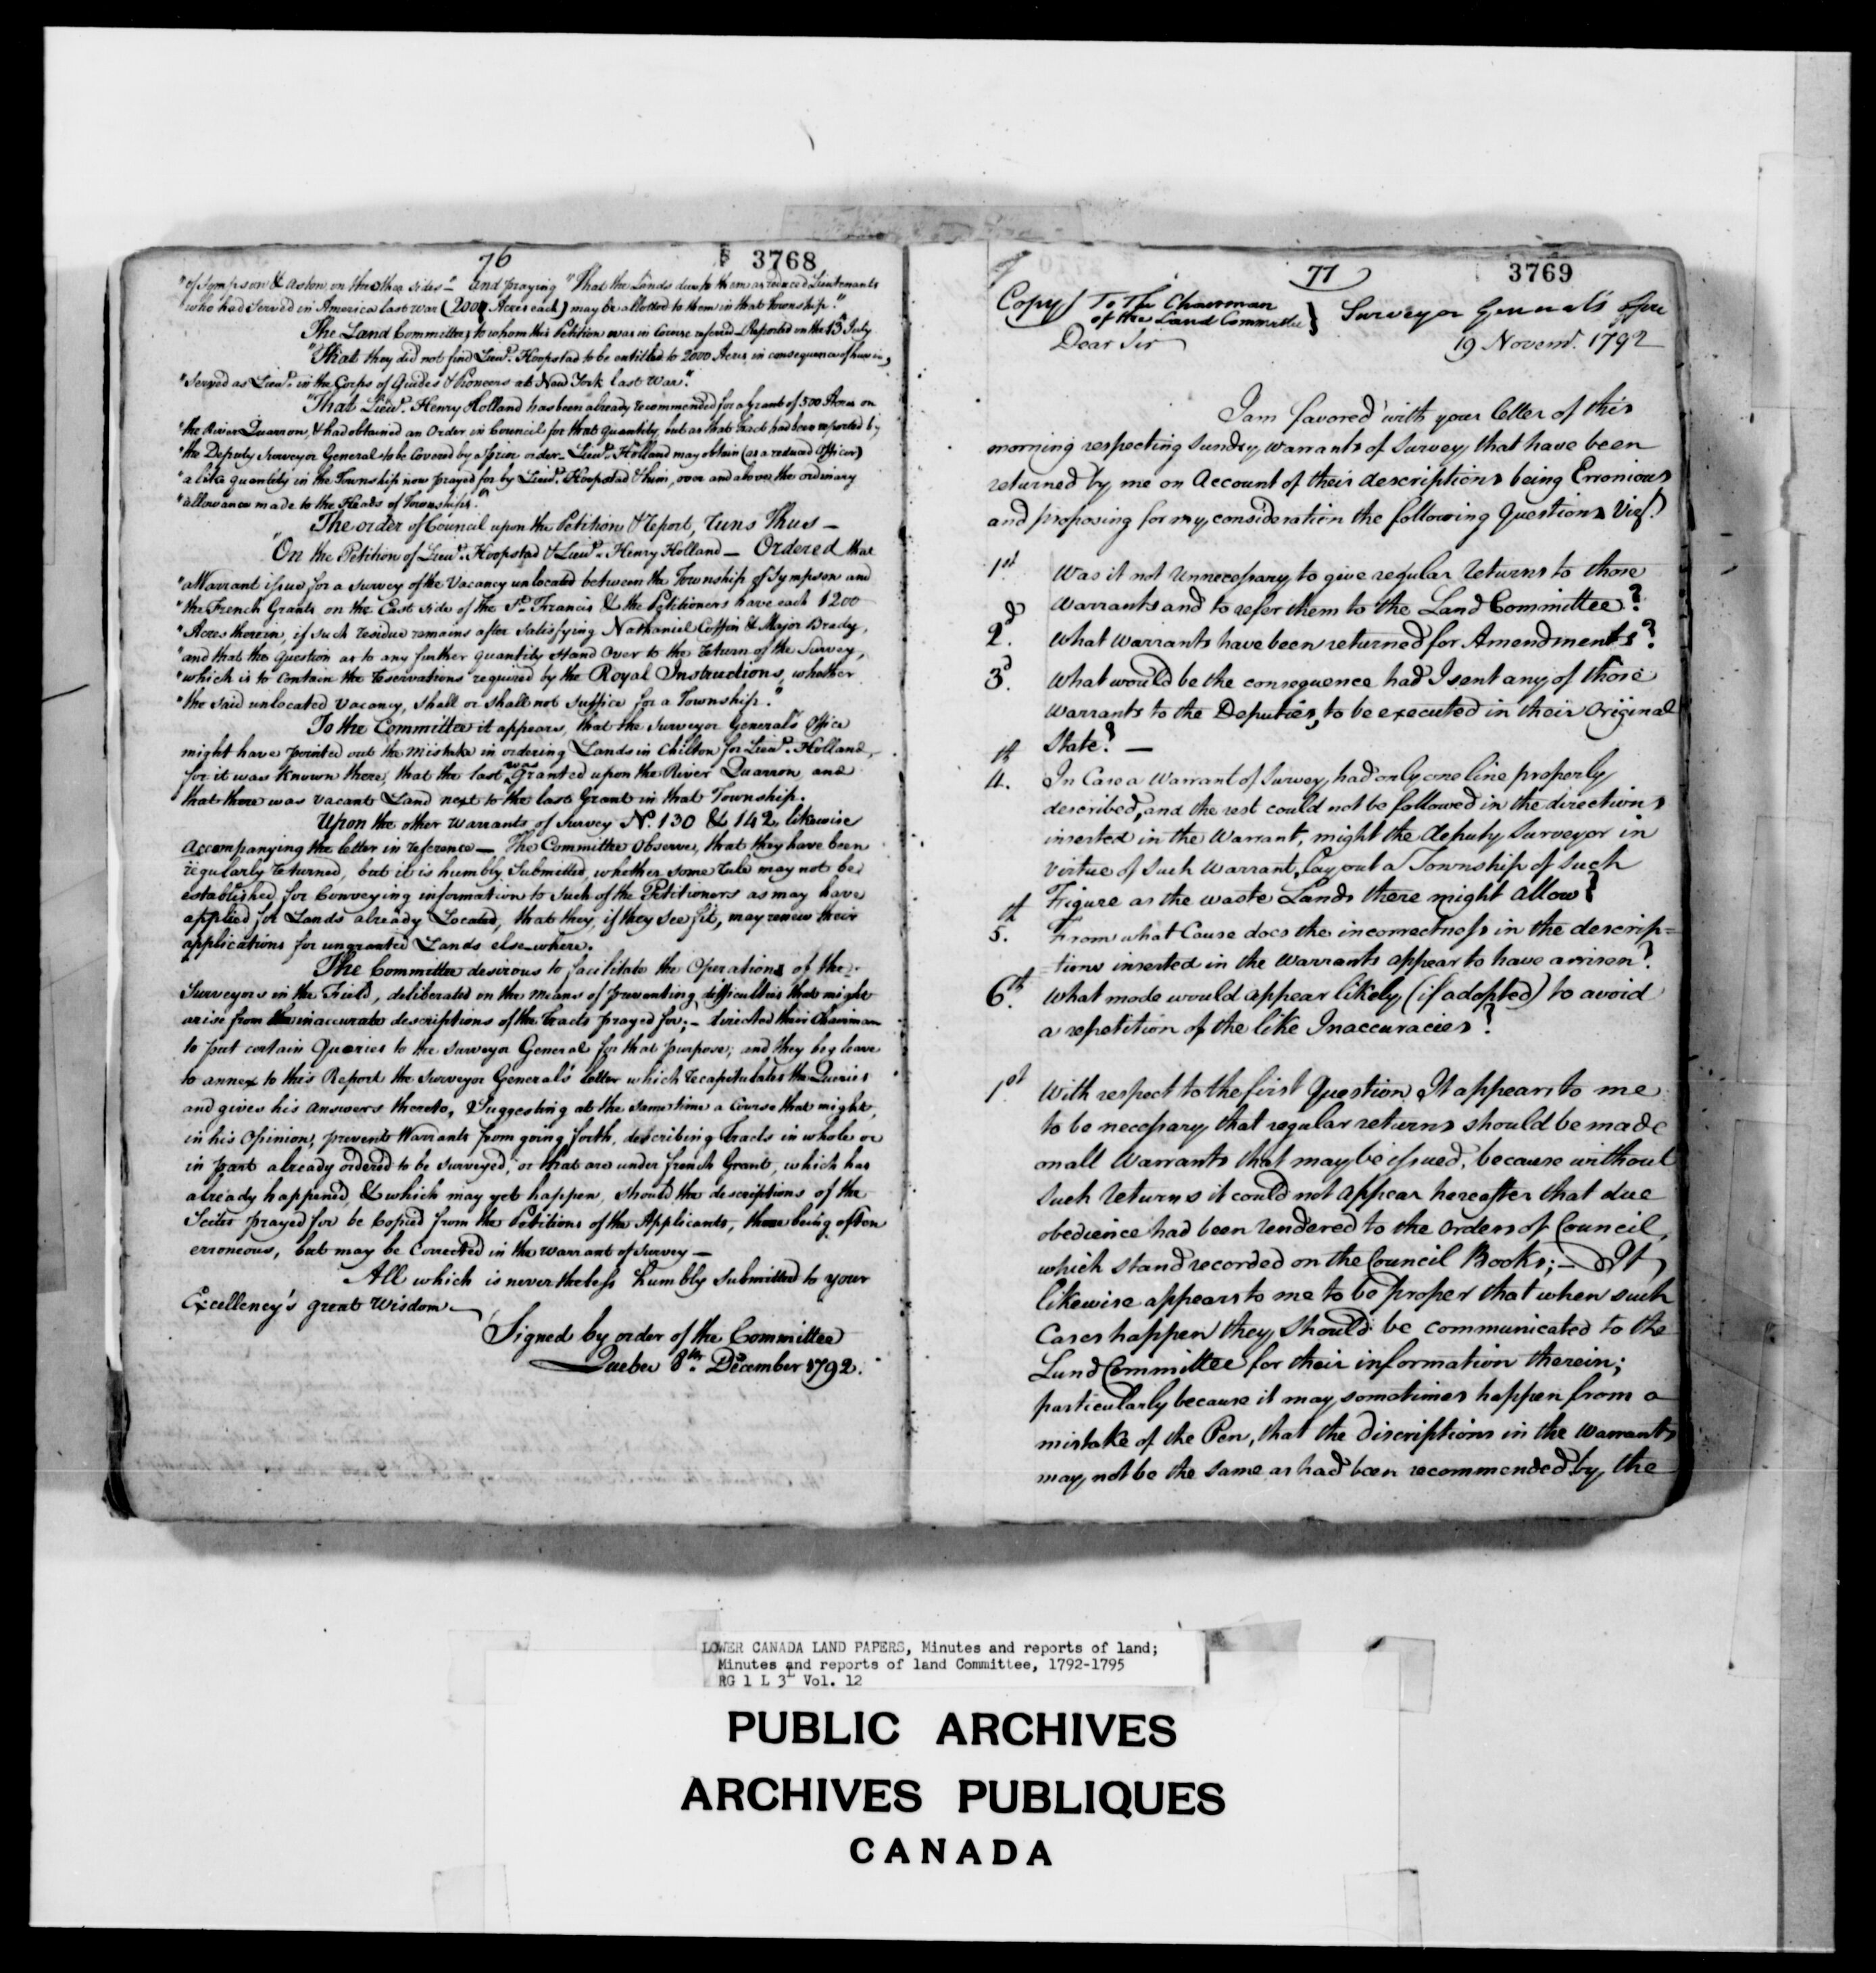 76
3768
"of Sympson & Aston on the other sides" – and praying "That the Lands due to them as reduced Lieutenants
"who had Served in America last War (2000 Acres each) may be allotted to them in that Township."
The Land Committee, to whom this Petition was in Course referred – Reported on the 13 July
"That they did not find Lieut. Hoopstad to be entitled to 2000 Acres in consequence of having
"Served as Lieut. in the Corps of Guides & Pioneers at New York last War."
"That Lieut. Henry Holland has been already recommended for a Grant of 500 Acres on
"the River Quarron, & had obtained an Order in Council for that quantity, but as that Tract had been reported by
"the Deputy Surveyor General to be Covered by a prior order – Lieut. Holland may obtain (as a reduced Officer)
"a like quantity in the Township now prayed for by Lieut. Hoopstad & him, over and above the ordinary
"allowance made to the Heads of Townships."
The order of Council upon the Petition & report, runs Thus –
"On the Petition of Lieut. Hoopstad & Lieut. Henry Holland – Ordered that
"a Warrant issue for a survey of the Vacancy unlocated between the Township of Sympson and
"the French Grants on the East side of the St. Francis & the Petitioners have each 1200
"Acres therein, if such residue remains after satisfying Nathaniel Coffin & Major Brady,
"and that the question as to any further quantity Stand Over to the return of the Survey,
"which is to contain the reservations required by the Royal Instructions, whether
"the said unlocated Vacancy, shall or shall not suffice for a Township."
To the Committee it appears, that the Surveyor General's Office
might have pointed out the mistake in ordering Lands in Chilton for Lieut. Holland,
for it was known there, that the last was Granted upon the River Quarron, and
that there was vacant Land next to the last Grant in that Township.
Upon the other Warrants of Survey No. 130 & 142, likewise
accompanying the letter in reference – The Committee Observe, that they have been
regularly returned, but it is humbly Submitted, whether some rule may not be
established for Conveying information to such of the Petitioners as may have
applied for Lands already Located, that they, if they see fit, may renew their
applications for ungranted Lands else-where.
The Committee desirous to facilitate the Operations of the
Surveyors in the Field, deliberated on the means of preventing difficulties that might
arise from the inaccurate descriptions of the Tracts prayed for; – directed their Chairman
to put certain Queries to the Surveyor General for that purpose; and they beg leave
to annex to this Report the Surveyor General's letter which recapitulates the Queries
and gives his answers thereto, Suggesting at the same time a Course that might,
in his Opinion, prevent Warrants from going forth, describing Tracts in whole or
in part already ordered to be surveyed, or that are under french Grant, which has
already happened, & which may yet happen, should the descriptions of the
Scites prayed for be Copied from the Petitions of the Applicants, these being often
erroneous, but may be Corrected in the warrant of Survey –
All which is nevertheless humbly submitted to your
Excellency's great Wisdom –
Signed by order of the Committee
Quebec 8th December 1792.
77
3769
Copy / To The Chairman
of the Land Committee } Surveyor General's Office
Dear Sir
19 Novemr. 1792
I am favored with your letter of this
morning respecting Sundry Warrants of Survey, that have been
returned by me on Account of their descriptions being Erronious
and proposing for my consideration the following Questions Vizt.
1st Was it not Unnecessary to give regular returns to those
Warrants and to refer them to the Land Committee?
2d. What Warrants have been returned for Amendments?
3d. What would be the consequence had I sent any of those
Warrants to the Deputies, to be executed in their Original
State? –
4th. In Case a Warrant of Survey, had only one line properly
described, and the rest could not be followed in the directions
inserted in the Warrant, might the deputy Surveyor in
virtue of such Warrant, lay out a Township of such
Figure as the waste Lands there might allow?
5th. From what Cause does the incorrectness in the descrip=
=tions inserted in the Warrants appear to have arrisen?
6th. What mode would appear likely (if adopted) to avoid
a repetition of the like Inaccuracies?
1st With respect to the first Question It appears to me
to be necessary that regular returns should be made
on all Warrants that may be issued, because without
such returns it could not appear hereafter that due
obedience had been rendered to the Orders of Council,
which stand recorded on the Council Books; – It
likewise appears to me to be proper that when such
Cases happen they should be communicated to the
Land Committee for their information therein;
particularly because it may sometimes happen from a
mistake of the Pen, that the discriptions in the Warrants
may not be the same as had been recommended by the
LOWER CANADA LAND PAPERS, Minutes and reports of land;
Minutes and reports of land Committee, 1792-1795
RG 1 L 3L Vol. 12
PUBLIC ARCHIVES
ARCHIVES PUBLIQUES
CANADA